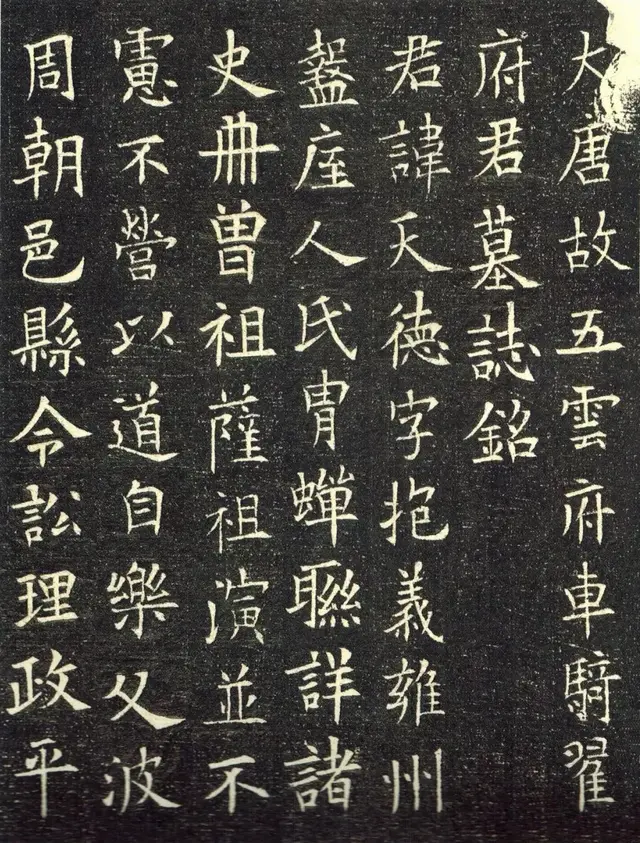 大唐故五雲府車騎翟
府君墓誌銘
君諱天德字抱義雍州
盩庢人氏胄蟬聯詳諸
史冊曾祖薩祖演並不
慮不營以道自樂父波
周朝邑縣令訟理政平